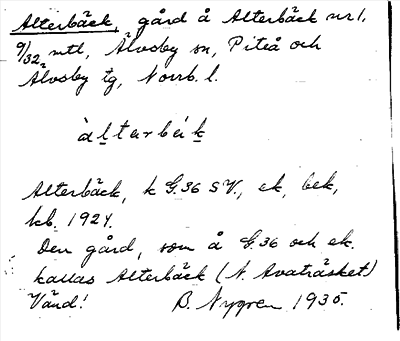 Alterbäck, gård å Alterbäck nr 1,
9/32 mtl, Älvsby sn, Piteå och
Älvsby tg, Norrb. l.
àltarbäk
Alterbäck, k G.36 SV., ek, bek,
kb. 1924.
Den gård, som å G.36 och ek.
kallas Alterbäck (N. Avaträsket)
Vänd! B. Nygren 1935.